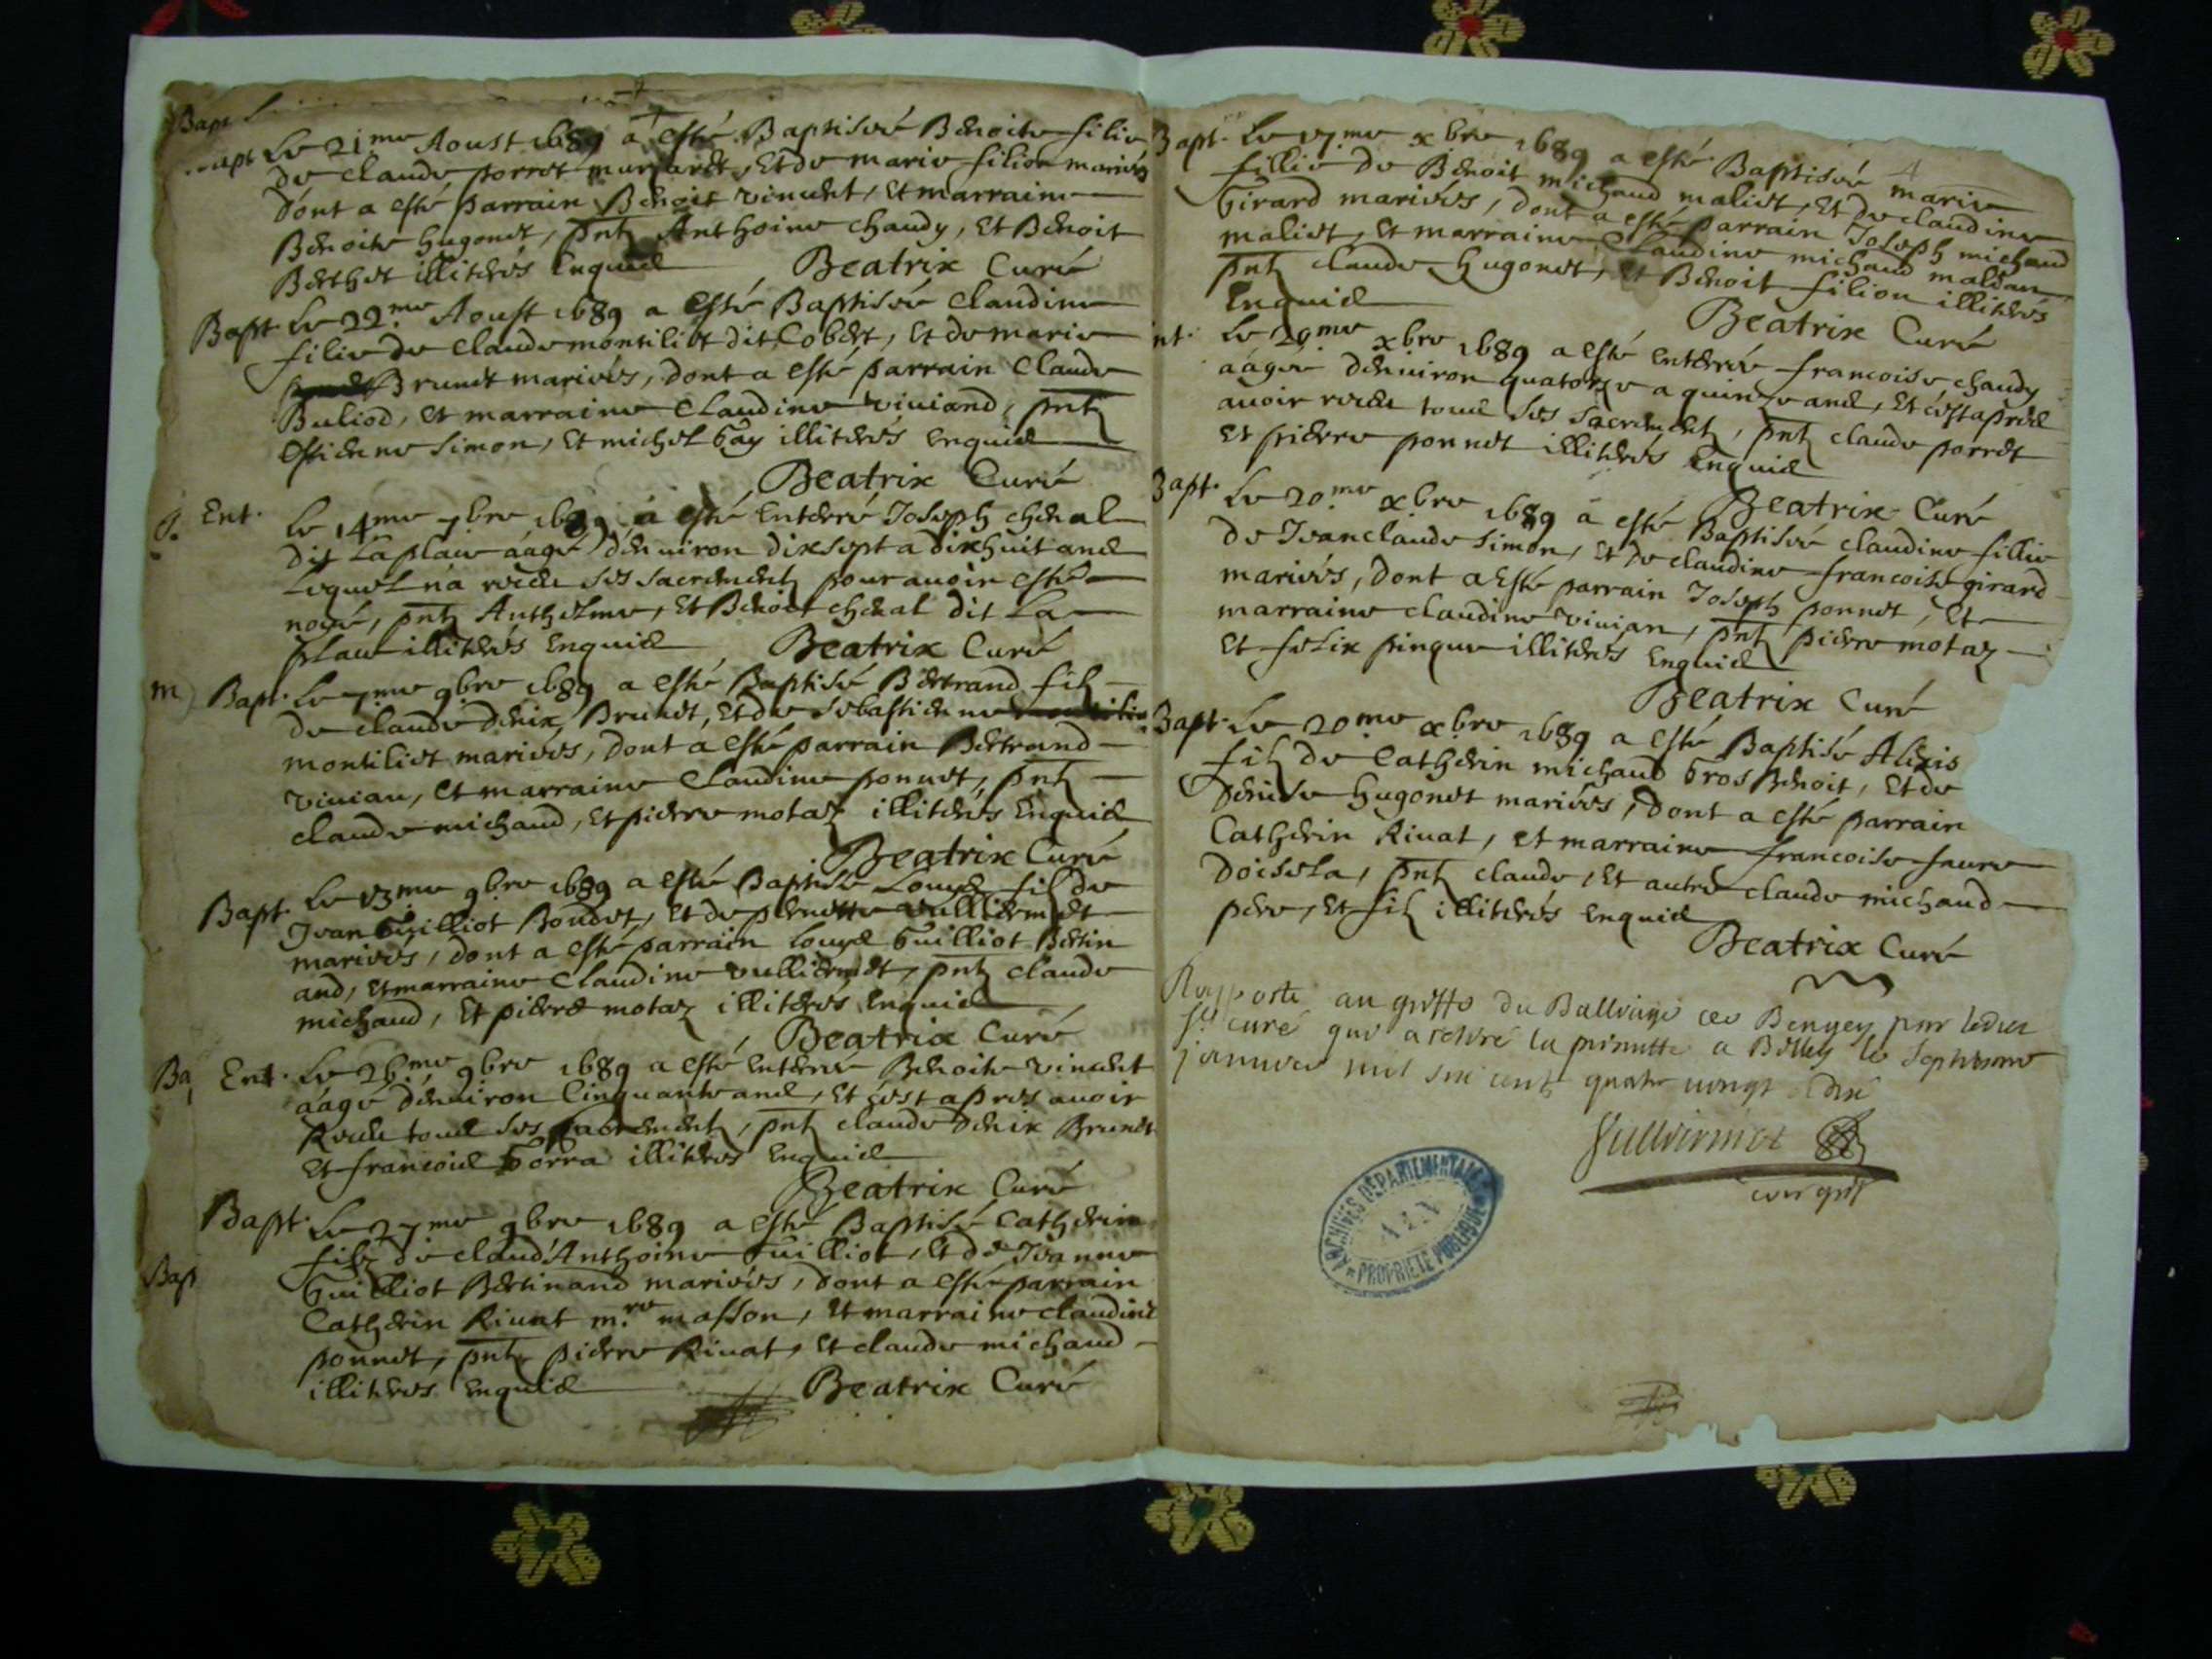 Bapt
Bapt Le 21.me Aoust 1689 a esté Baptisée Benoite fillie
de Claude porret murfaret, Et de marie fillion mariés
dont a esté parrain Benoit vincent, et marraine
Benoite hugonet, pnts Anthoine chaudy, et Benoit
Berthet illiterés Enquis Beatrix Curé
Bapt Le 22.me Aoust 1689 a esté Baptisée Claudine
fillie de Claude montiliet dit Cobert, et de marie
Brunet mariées, dont a esté parrain Claude
Buliod, et marraine Claudine viviand, pnts
Estienne Simon, et michel Gay illiterés enquis
Beatrix Curé
Ent. Le 14me 7bre 1689 a esté Enterré Joseph cheval
dit La plaie áagé d'environ dixsept a dixhuit ans
lequel n'a receu ses sacrements pour avoir esté
noié, pnts Anthelme, et Benoit cheval dit La
plaie illiterés Enquis Beatrix Curé
m
Bapt. Le 7me 9bre 1689 a esté Baptisé Bertrand fils
de claude Denix Brunet, et de sebastienne
montiliet mariées, dont a esté parrain Bertrand
vivian, et marraine Claudine ponnet, pnts
claude michaud, et pierre motaz illiterés Enquis
Beatrix Curé
Bapt. Le 13me 9bre 1689 a esté Baptisé Louys fils de
Jean Guilliot Boudet, et de pernette vulliermet
mariées, dont a esté parrain Louys Guilliot Bertin
and, et marraine Claudine vulliermet, pnts claude
michaud, Et pierre motaz illiterés Enquis
Beatrix Curé
Ba Ent. Le 26.me 9bre 1689 a esté Enterré Benoite vincent
áagé d'environ Cinquante ans, et c'est apres avoir
Receu tous ses sacrements, pnts claude Denix Brunet
et francois Gorra illiterés Enquis
Beatrix Curé
Bapt. Le 27me 9bre 1689 a esté Baptisé Catherin
fils de claud'Anthoine Guilliot, et de Jeanne
Bap
Guilliot Bertinand mariées, dont a esté parrain
Catherin Rivat m.re masson, et marraine claudine
ponnet, pnts pierre Rivat, et claude michaud
illiterés enquis Beatrix Curé
Bapt. Le 17.me xbre 1689 a esté Baptisée marie
fillie de Benoit michaud maliet, et de claudine
Girard mariées, dont a esté parrain Joseph michaud
maliet, et marraine Claudine michaud maldan
pnts claude hugonet, et Benoit filion illiterés
Enquis Beatrix Curé
nt. Le 29me xbre 1689 a esté Enterrée francoise chaudy
áagée d'environ quatorze a quinze ans, et c'est apres
avoir receu tous ses sacrements, pnts claude porret
et pierre ponnet illiterés Enquis
Beatrix Curé
Bapt. Le 20.me xbre 1689 a esté Baptisée claudine fillie
de Jeanclaude simon, et de claudine francoise girard
mariées, dont a esté parrain Joseph ponnet, Et
marraine claudine vivian, pnts pierre motaz
et felix pingue illiterés Enquis
Beatrix Curé
Bapt. Le 20me xbre 1689 a esté Baptisé Alexis
fils de Catherin michaud Gros Benoit, Et de
Denise hugonet mariées, dont a esté parrain
Catherin Rivat, et marraine francoise faure
Doisela, pnts claude, et autre claude michaud
pere, et fils illiterés enquis
Beatrix Curé
au greffe du Balliage de Bengey par ledict
Sr curé qui a retiré la minutte a Belley le septiesme
janvier mil six cents quatre vingt dix
Vulliermet
ARCHIVES DÉPARTEMENTALES
AIN
PROPRIÉTÉ PUBLIQUE